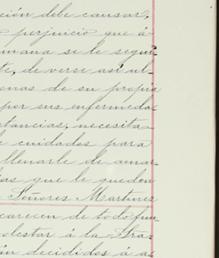 ción debe causar,
perjuicio que á
mana se le segui
te, de verse así ul
enas de su propia
por sus enfermeda
tancias, necesita
e cuidados para
llenarle de amar
que le queden
Señores Martinez
carecen de todo fun
olestar á la Sra
ón decididos á a